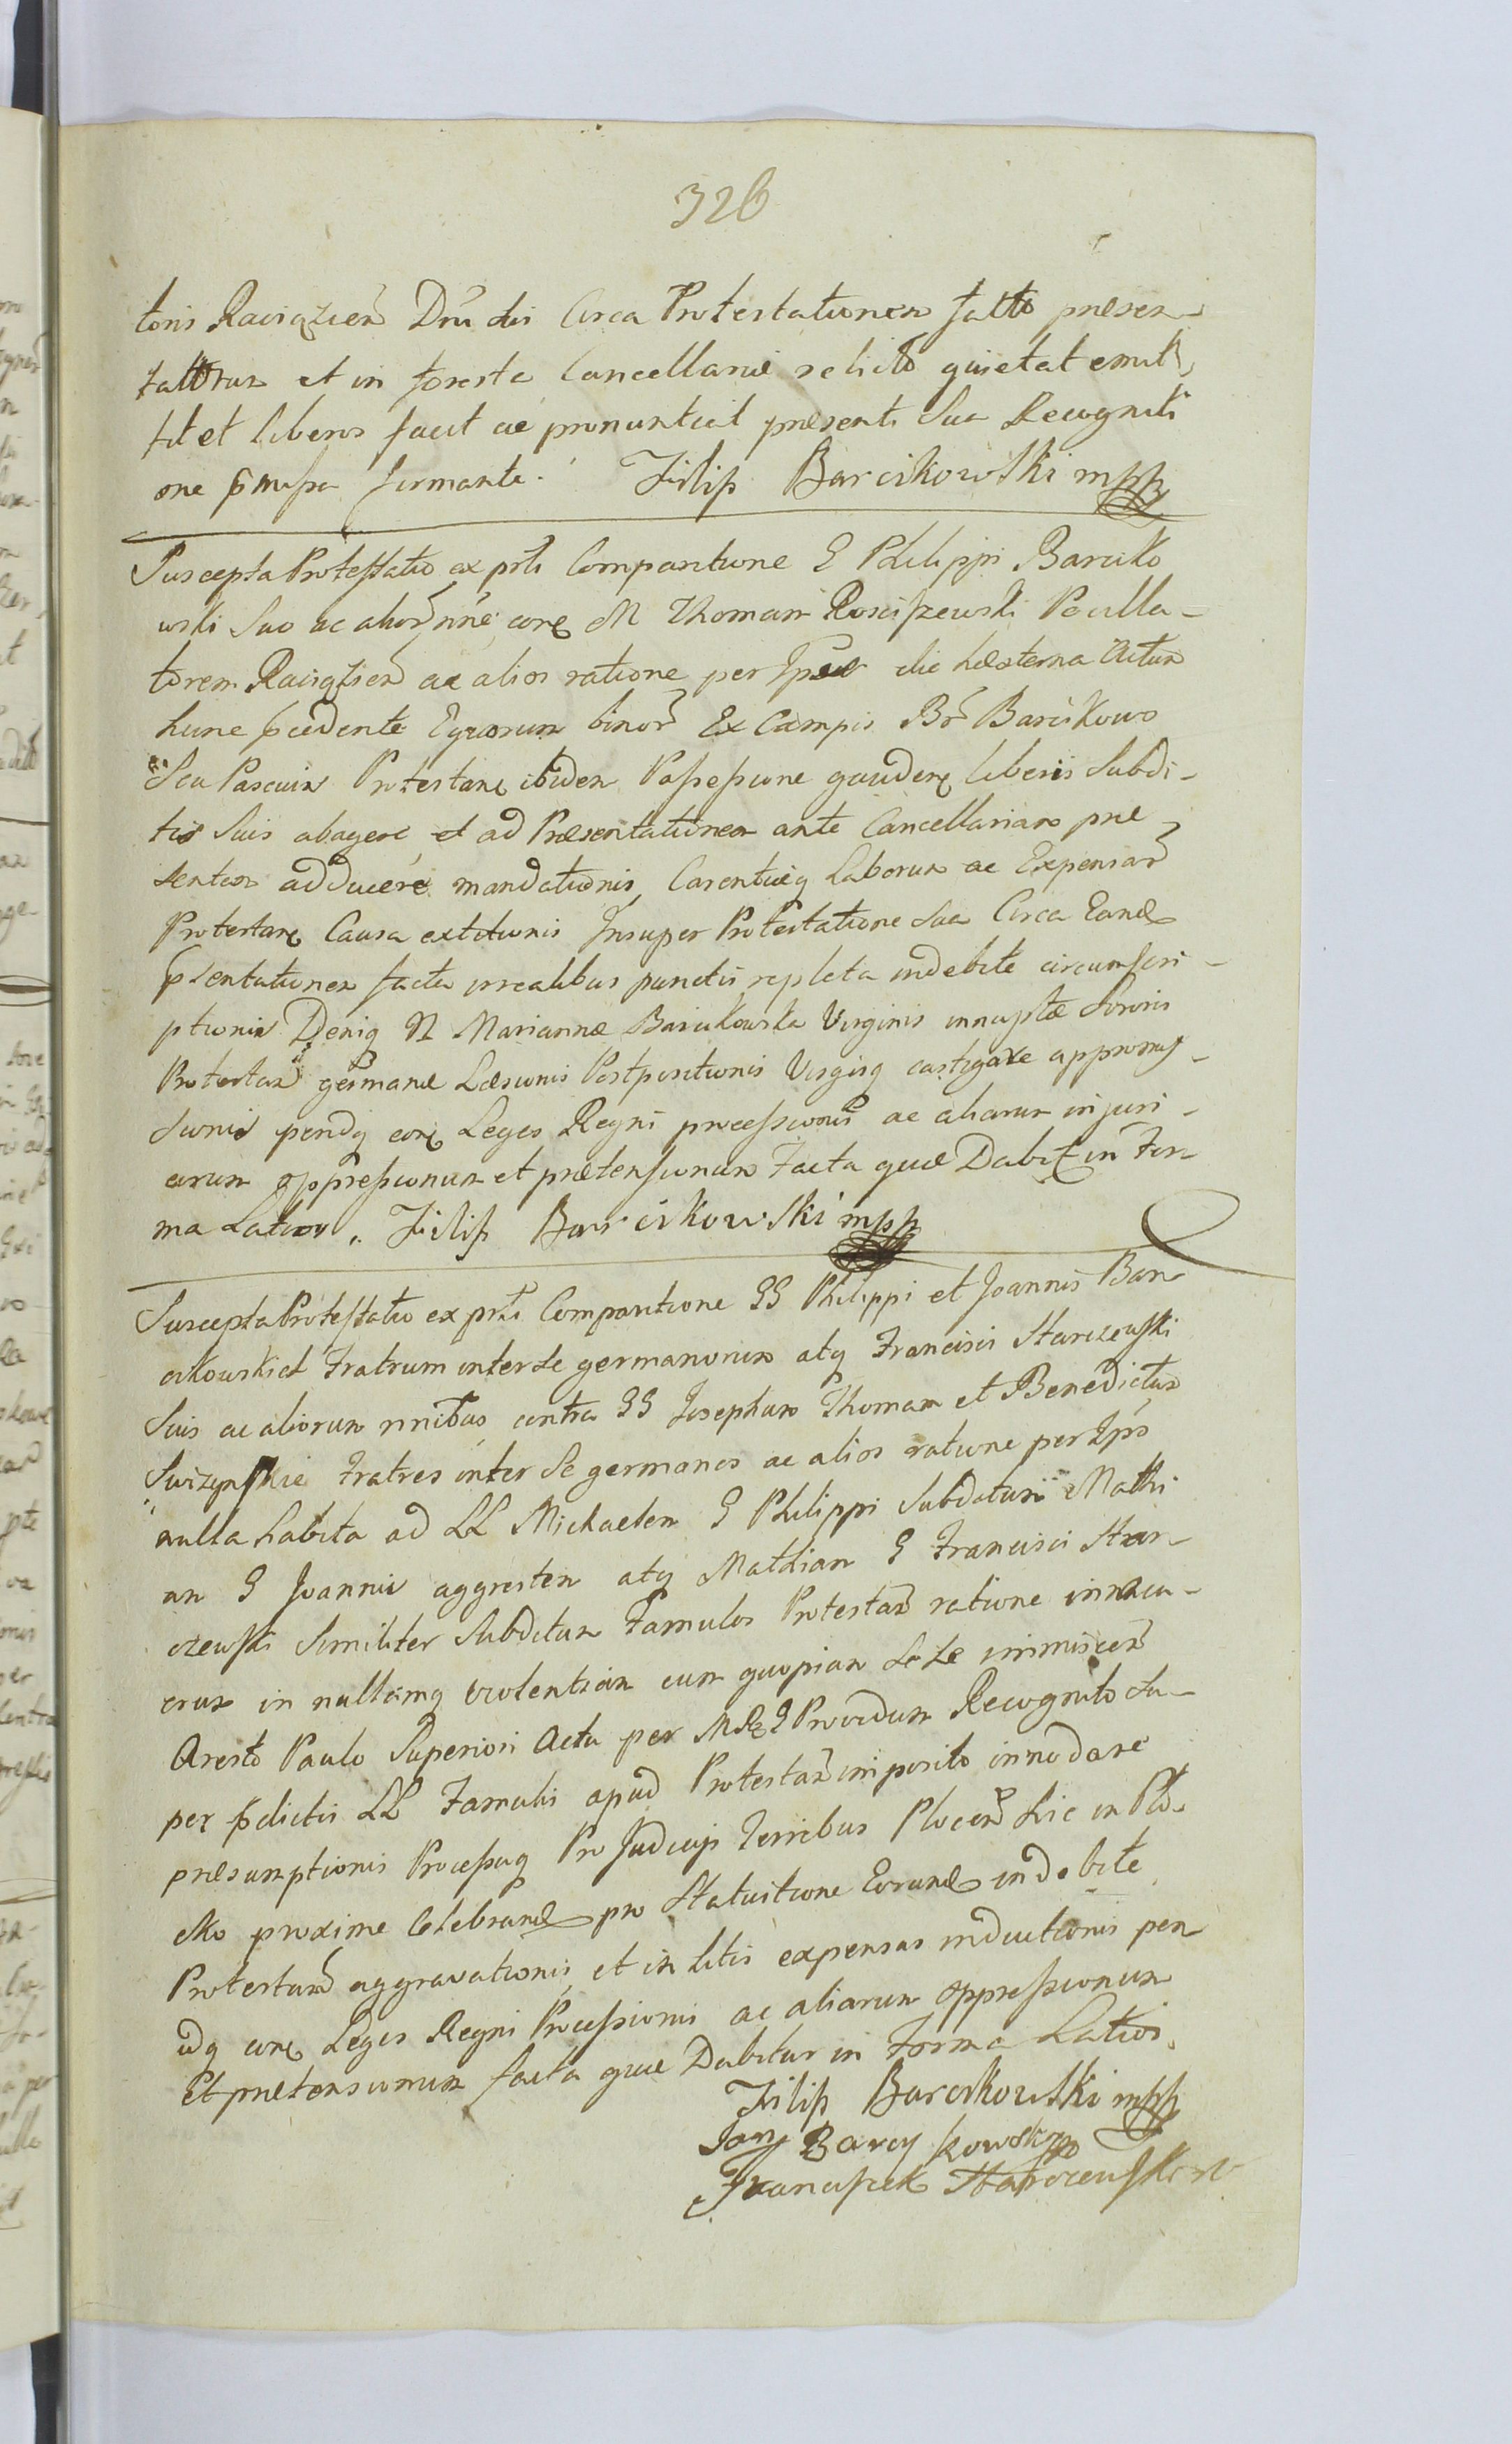 326
toris Raciązien Drui dii Circa Protestationem facto presen-
tattorum et in foresta Cancellariæ relicto quietat emit-
tit et liberos facit ac pronuntiat præsenti sua Recogniti
one præmissa firmante. Filip Barcikowski mpp
Suscepta Protestatio ex prti Comparitione G Philippi Barciko
wski Suo ac alior nne cora M Thomam Rosciszewski Pocilla-
torem Raciązien ac alios ratione per Ipsu die hesterna Actum
hunc pcedente Equorum binor Ex Campis Br Barcikowo
Seu Pascuis Protestan ibidem Possessione gauden liberis Subdi-
tis Suis abagere et ad Præsentationem ante Cancellariam præ
sentem adducere mandationis, Carentiæq Laborum ac Expensar
Protestan Causa extitionis Insuper Protestatione sua Circa Eand
psentationem facta irrealibus punctis repleta indebite circumscri-
ptionis Deniq N Mariannæ Barcikowska Virginis innuptæ Sororis
Protestan germanæ Læsionis Postpositionis Virgisq castigare appromis-
sionis pendq con Leges Regni processionis ac aliarum injuri-
arum oppressionum et prætensionum Facta quæ Dabit in For
ma Latiori. Filip Barcikowski mpp
Suscepta Protestatio ex prti Comparitione GG Philippi et Joannis Bar
cikowskich Fratrum inter se germanorum atq Francisci Starczewski
Suis ac aliorum nnibus contra GG Josephum Thomam et Benedictum
Swizynskie Fratres inter Se germanos ac alios ratione per Ips
nulla habita ad LL Michaelem G Philippi Subditum Mathi
am G Joannis aggrestem atq Mathiam G Francisci Star-
czewski Similiter Subditum Famulos Protestan ratione innocu-
orum in nullamq violentiam cum quopiam Sese immiscen
Aresto Paulo Superiori Actu per MRG Providum Recognito Su-
per pdictis LL Famulis apud Protestan imposito innodare
præsumptionis Processuq Pro Judicys Terribus Plocen hic in Plo-
cko proxime Celebrand pro Statuitione Eorund indebite
Protestan aggravationis, et in litis expensas inductionis pen
dq con Leges Regni Processionis ac aliarum oppressionum
Et prætensionum facta quæ Dabitur in Forma Latiori.
Filip Barcikowski mpp
Jan Barcykowski mpp
Franciszek Starczewski